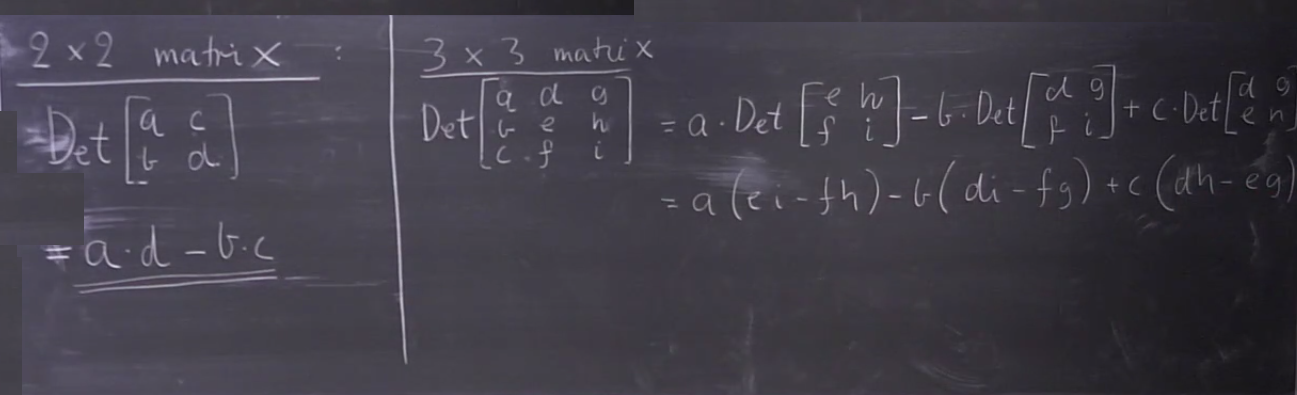 2 × 2 matrix :
Det [a c
b d]
= a·d – b·c
3 × 3 matrix
Det [a d g
b e h
c f i]
= a · Det [e h
f i] – b · Det [d g
f i] + c · Det [d g
e h]
= a (ei – fh) – b (di – fg) + c (dh – eg)